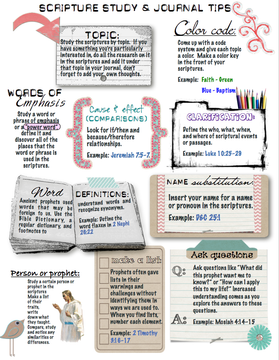 SCRIPTURE STUDY & JOURNAL TIPS
TOPIC:
Study the scriptures by topic. If you
have something you're particularly
interested in, do all the research on it
in the scriptures and add it under
that topic in your journal, don't
forget to add your own thoughts.
Color code:
Come up with a code
system and give each topic
a color. Make a color key
in the front of your
scriptures.
Example: Faith - Green
Blue - Baptism
WORDS OF
Emphasis
Study a word or
phrase of emphasis
or a "power word"
define it and
discover all of the
places that the
word or phrase is
used in the
scriptures.
Cause & effect
(COMPARISONS)
Look for if/then and
because/therefore
relationships.
Example: Jeremiah 7:5-7
CLARIFICATION
Define the who, what, when,
and where of scriptural events
or passages.
Example: Luke 10:25-29
Word DEFINITIONS:
Ancient prophets used
words that may be
foreign to us. Use the
Bible Dictionary, a
regular dictionary, and
footnotes to
understand words and
recognize synonyms.
Example: Define the
word flaxen in 2 Nephi
26:22
NAME substitution:
Insert your name for a name
or pronoun in the scriptures.
Example: D&C 25:1
Person or prophet:
Study a certain
person or prophet
in the scriptures
Make a list
of their
traits,
write
down what
they taught.
Compare, study
and notice
any similarities
or changes.
make a list
Prophets often gave
lists in their
warnings and
challenges without
identifying them in
ways we are used to.
When you find lists,
number each element.
Example: 2 Timothy
3:14-17
Ask questions
Q:
A:
Ask questions like "What did
this prophet want me to
know?" or "How can I apply
this to my life?" Increased
understanding comes as you
explore the answers to these
questions.
Example: Mosiah 4:14-15